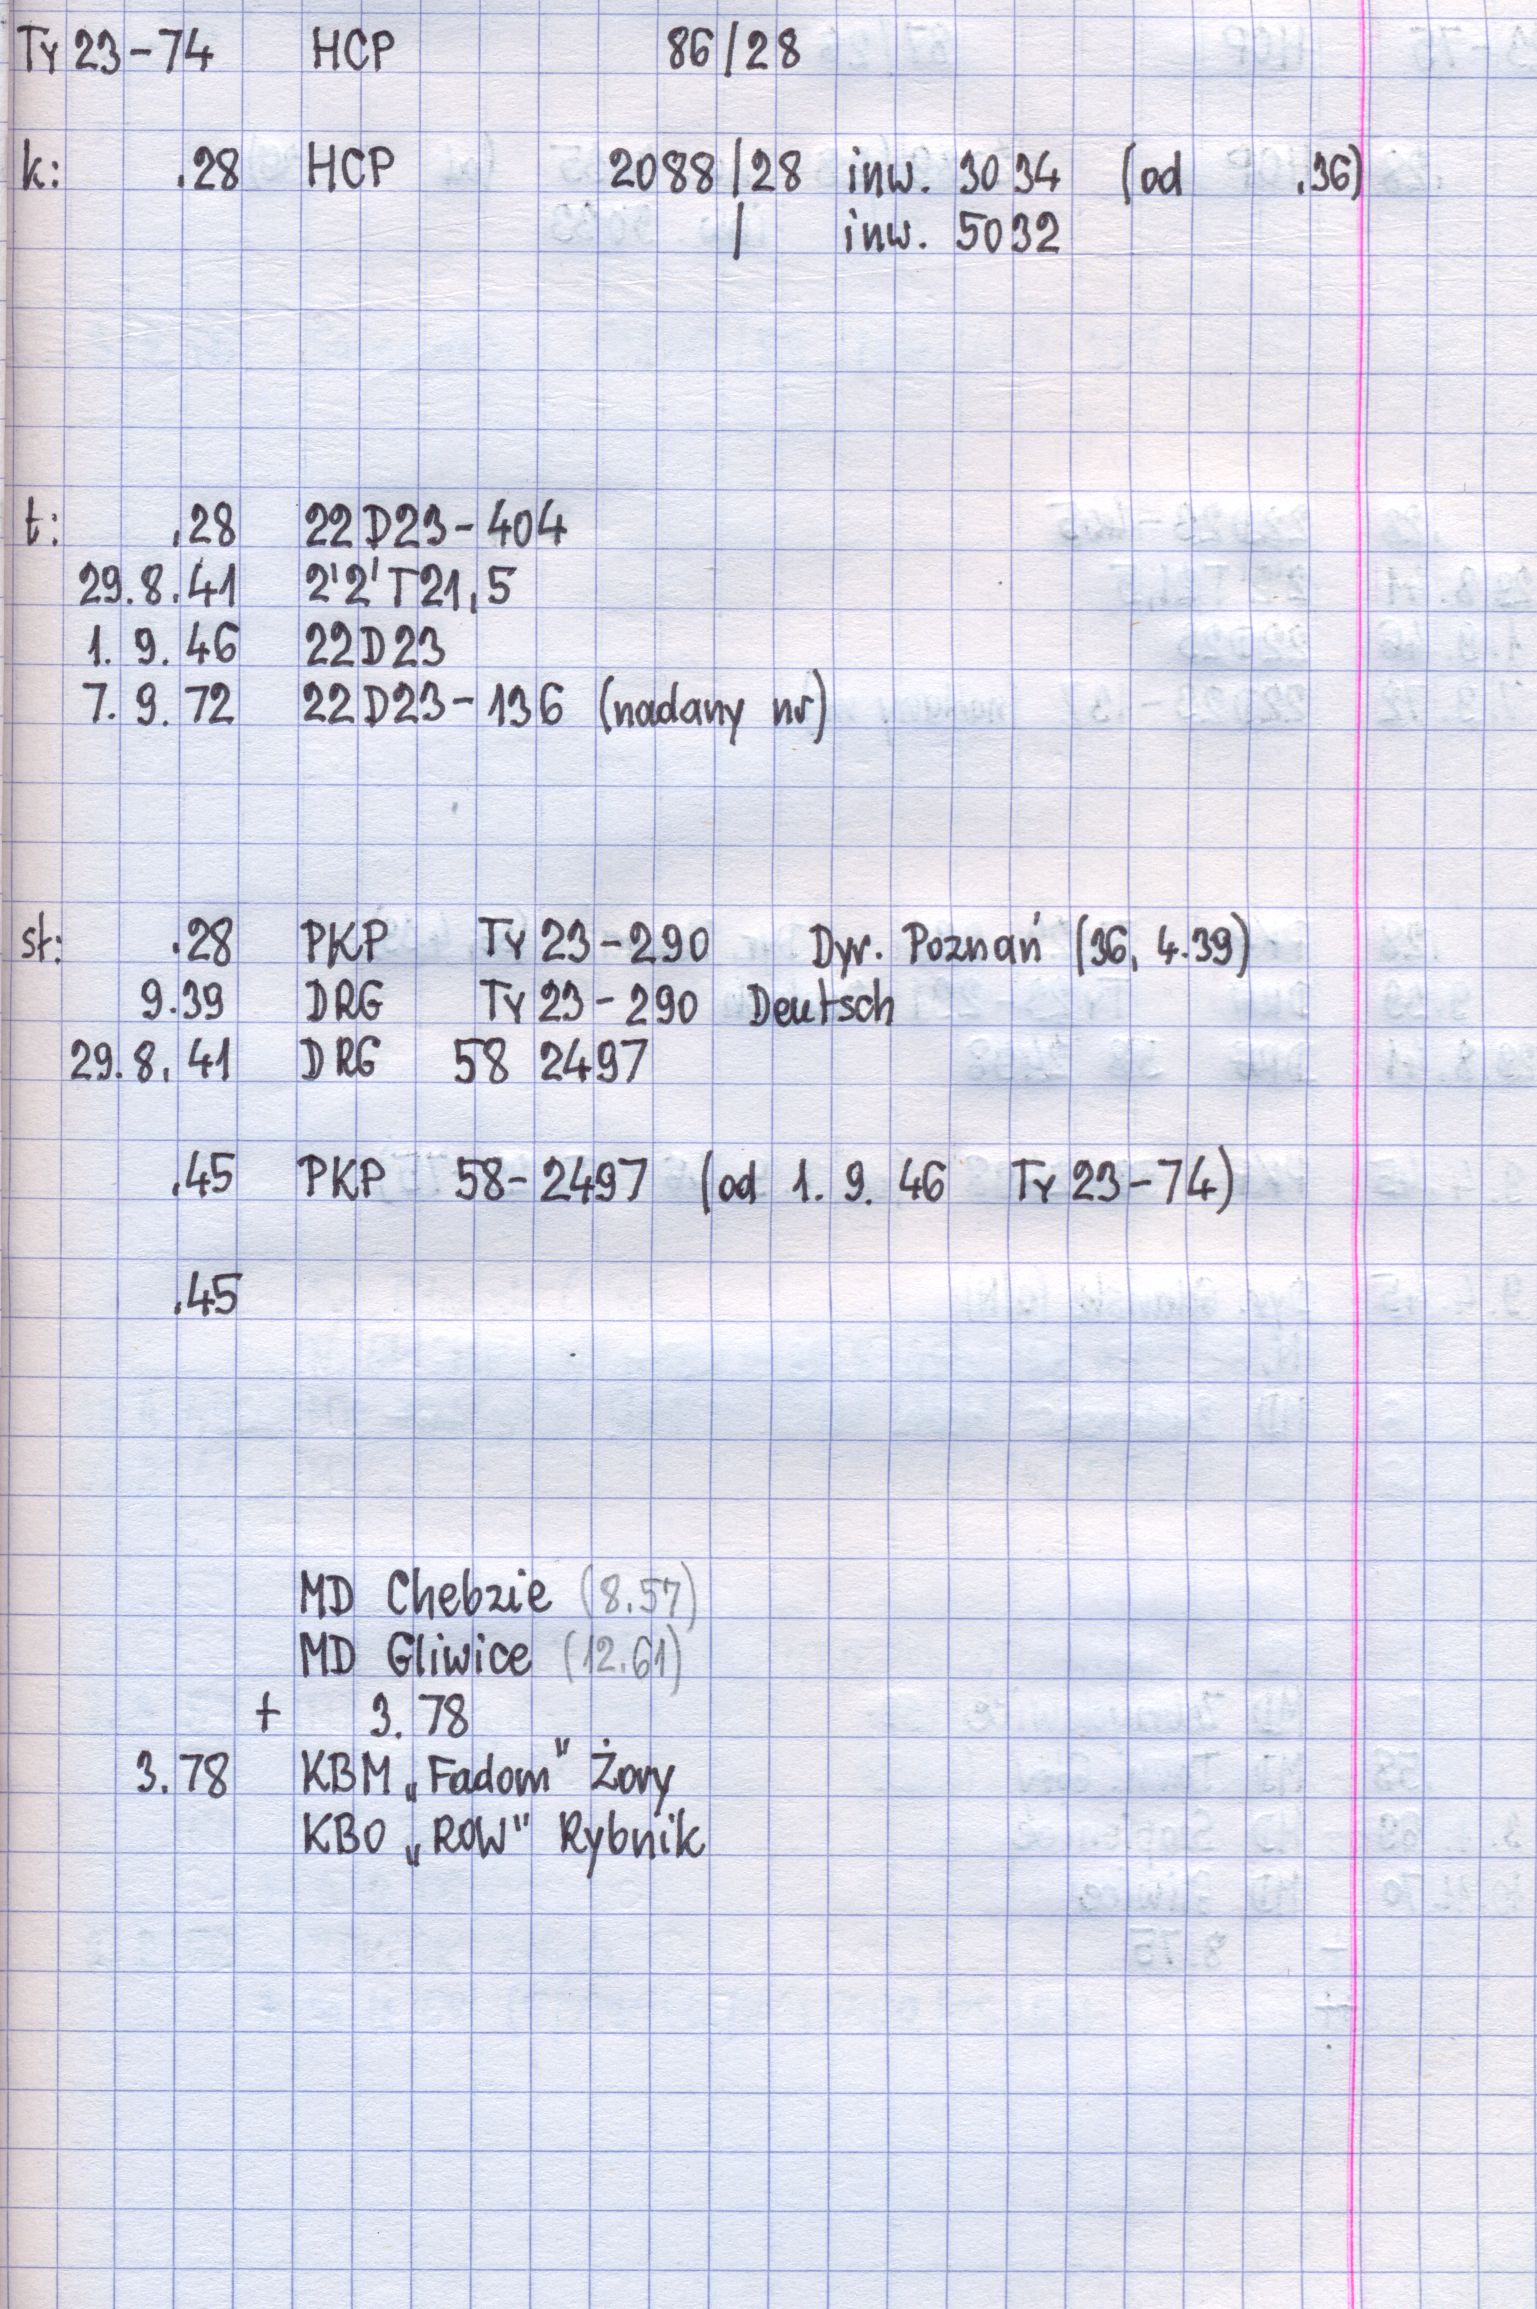 Ty 23-74 HCP 86/28
k: .28 HCP 2088/28 inw. 3034 (od .36)
/ inw. 5032
t: .28 22D23-404
29.8.41 2'2'T21,5
1.9.46 22D23
7.9.72 22D23-136 (nadany nr)
sł: .28 PKP Ty 23-290 Dyr. Poznań (36, 4.39)
9.39 DRG Ty 23-290 Deutsch
29.8.41 DRG 58 2497
.45 PKP 58-2497 (od 1.9.46 Ty 23-74)
.45
MD Chebzie (8.57)
MD Gliwice (12.61)
+ 3.78
3.78 KBM „Fadom" Żory
KBO „ROW" Rybnik